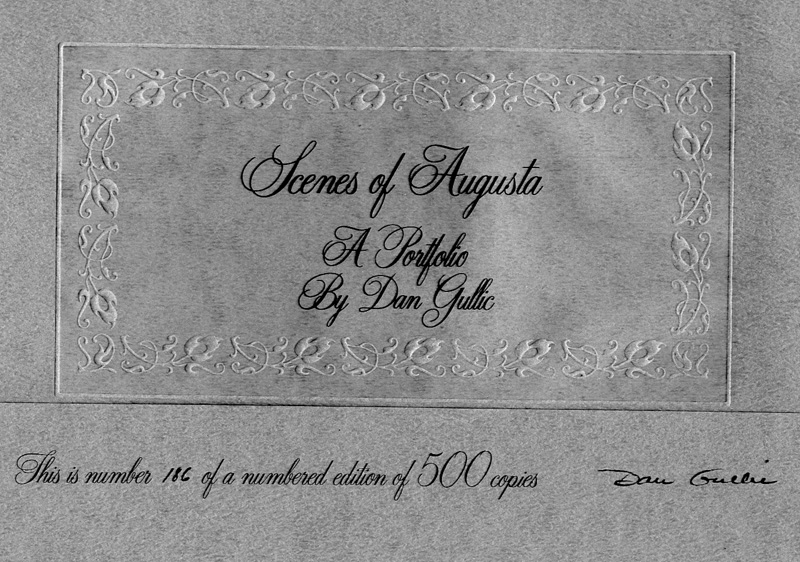 Scenes of Augusta
A Portfolio
By Dan Gullic
This is number 186 of a numbered edition of 500 copies
Dan Gullic